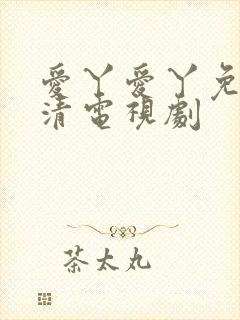 愛丫愛丫免
清電視劇
茶太丸